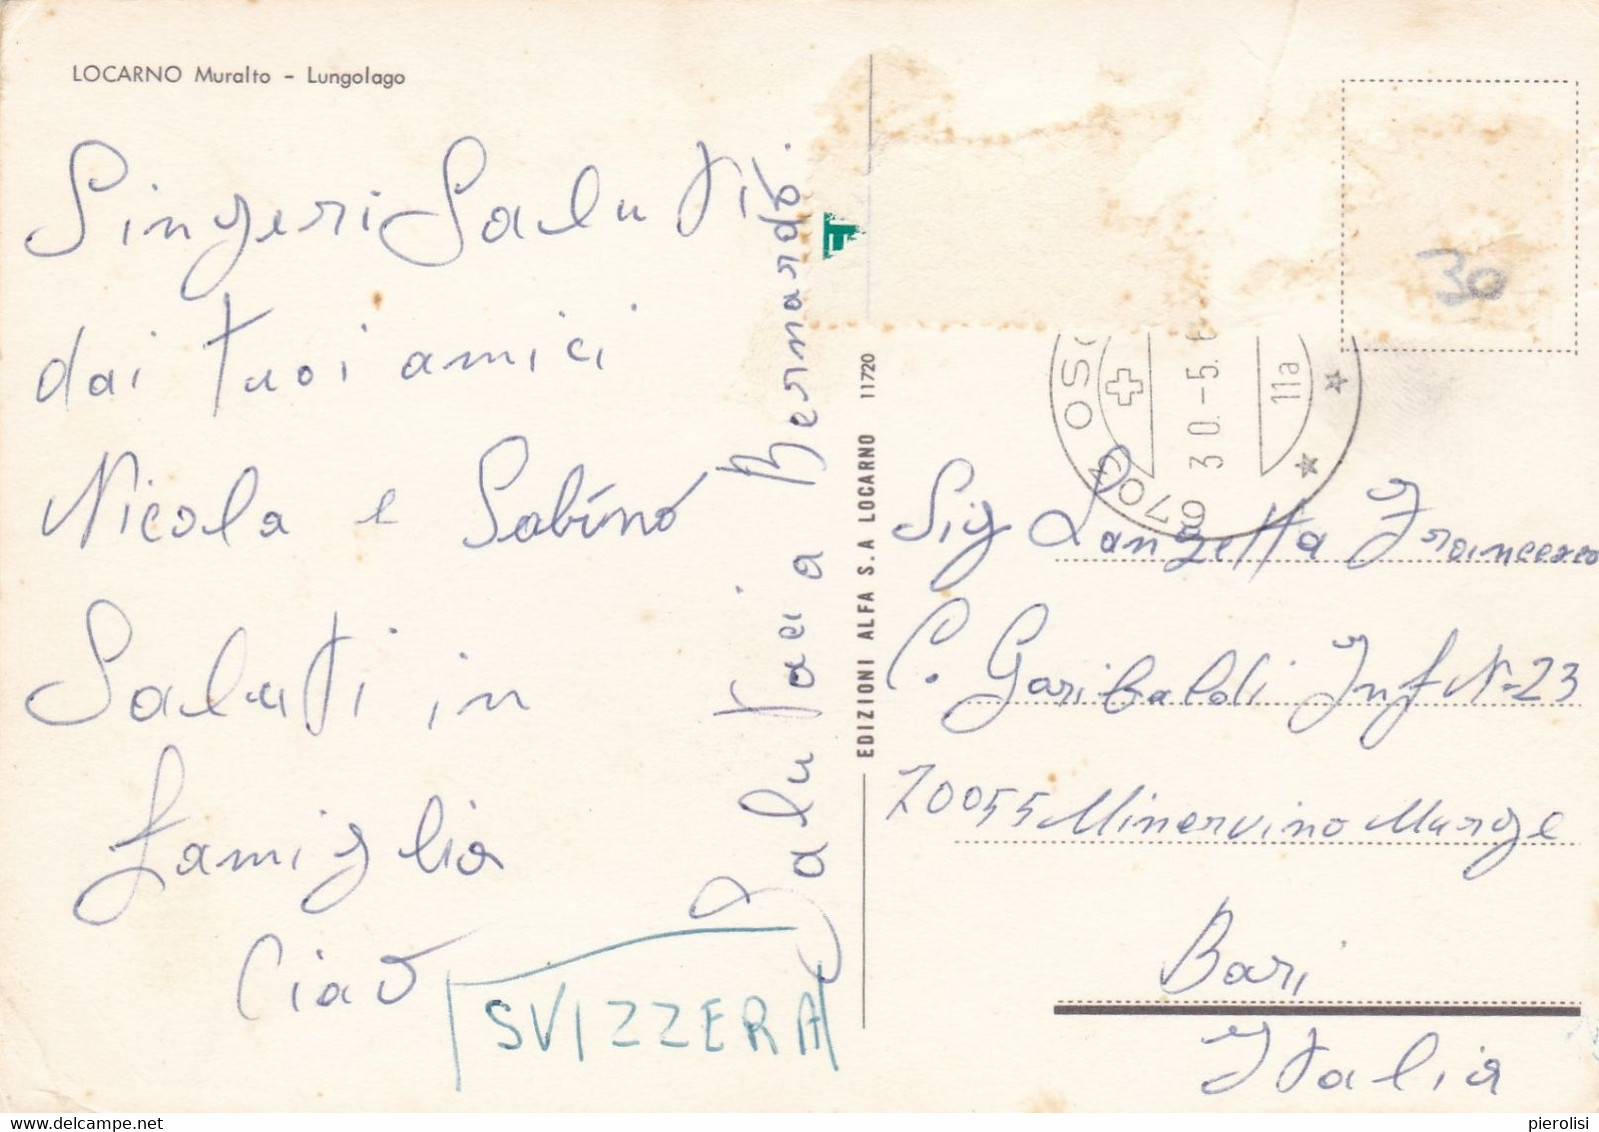 LOCARNO Muralto - Lungolago
Singeri Saluti
dai tuoi amici
Nicola e Sabino
Saluti in
famiglia
Ciao
SVIZZERA
Saluti a Bernardo.
EDIZIONI ALFA S.A LOCARNO 11720
30
6703 OSO
30.-5.6
11a
Sig Langetta Francesco
C. Garibaldi Inf N-23
70055 Minervino Murge
Bari
Italia
delcampe.net
pierolisi